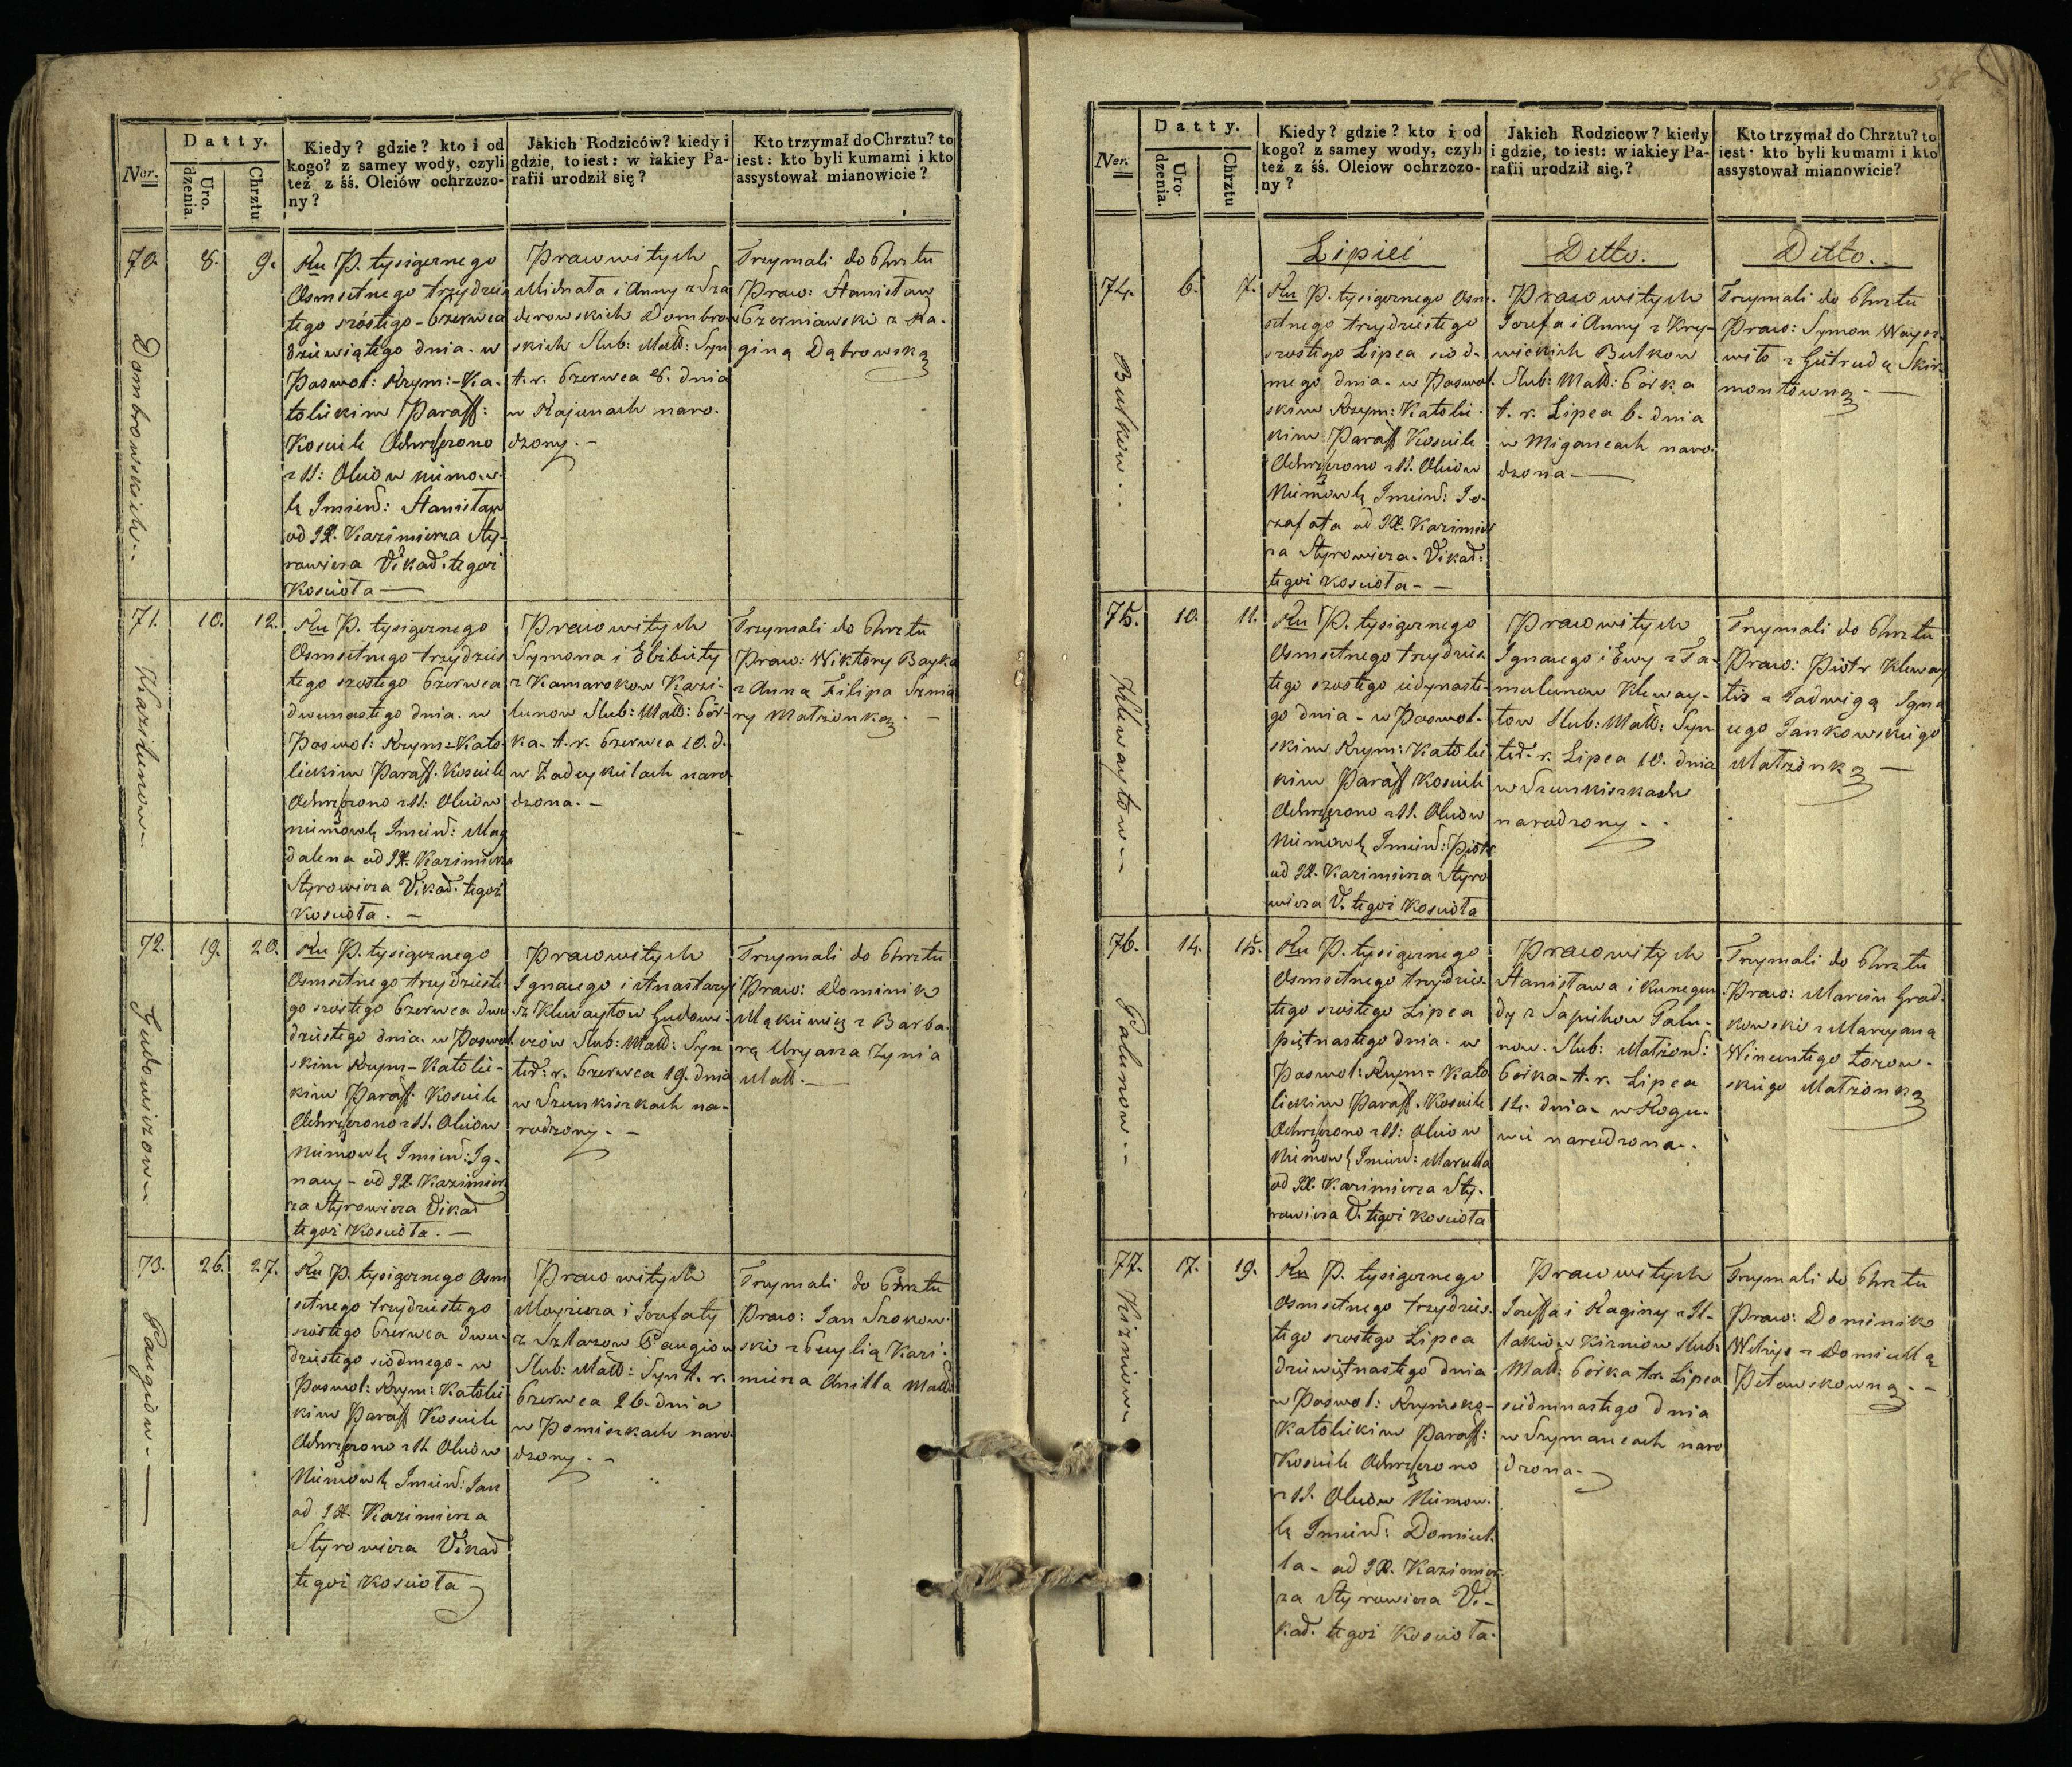 Datty.
Ner.
Uro.
dzenia.
Chrztu
Kiedy? gdzie? kto i od
kogo? z samey wody, czyli
też z śś. Oleiów ochrzczo-
ny?
Jakich Rodziców? kiedy i
gdzie, to iest: w iakiey Pa-
rafii urodził się?
Kto trzymał do Chrztu? to
iest: kto byli kumami i kto
assystował mianowicie?
70.
Dombrowskich
8.
9.
Ru P. tysiącznego
Osmsetnego trzydzies
tego szóstego - Czerwca
dziewiątego dnia - w
Poswol: Rzym:-Ka-
tolickim Paraff:
Kosciele Ochrzczono
z SS: Oleiów niemow-
lę Imien: Stanisław
od JX. Kazimierza Sty-
rowicza Wikar: tegoż
Kościoła —
Prawowitych
Michała i Anny z Sza
derowskich Dombrow
skich Slub: Małż: Syn
t. r. Czerwca 8. dnia
w Kajunach naro-
dzony. -
Trzymali do Chrztu
Praw: Stanisław
Czerniawski z Ra-
giną Dąbrowską
71.
Kazilunow
10.
12.
Ru P. tysiącznego
Osmsetnego trzydzies
tego szostego Czerwca
dwunastego dnia. w
Poswol: Rzym=Kato-
lickim Paraff. Kosciele
Ochrzczono z SS: Oleiow
niemowlę Imien: Mag
dalena od JX. Kazimierza
Styrowicza Wikar. tegoż
kosciola. -
Prawowitych
Symona i Elżbiety
z Kamarskow Kazi-
lunow Slub: Małż: Cór-
ka t. r. Czerwca 10. d.
w Zadeykilach naro
dzona. -
Trzymali do Chrztu
Praw: Wiktory Bayka
z Anna Filipa Szmia
ry Małżonką. -
72.
Gudowiczow
19.
20.
Ru P. tysiącznego
Osmsetnego trzydzieste
go szóstego Czerwca dwu
dziestego dnia. w Poswol
skim Rzym-Katolic-
kim Paraff: Kosciele
Ochrzczono z SS. Oleiow
Niemowlę Imien: Ig-
nacy - od JX. Kazimier
za Styrowicza Wikar
tegoż Kosciola. -
Prawowitych
Ignacego i Anastazyi
z Klewaytow Gudowi-
czów Slub: Małż: Syn
też: r. Czerwca 19. dnia
w Szunkiszkach na-
rodzony. -
Trzymali do Chrztu
Praw: Dominik
Mąkiewicz z Barba-
rą Uryasza Zynia
Małż. —
73.
Paugiów
26.
27.
Ru P. tysiącznego Osm
setnego trzydziestego
szóstego Czerwca dwu-
dziestego siódmego - w
Poswol: Rzym: Katolic
kim Paraff Kosciele
Ochrzczono z SS. Oleiow
Niemowlę Imien: Jan
od JX. Kazimierza
Styrowicza Wikar
tegoż Kosciola
Prawowitych
Mayziera i Jozefaty
z Szlazow Paugiow
Slub: Małż: Syn t. r.
Czerwca 26. dnia
w Pomiszkach naro
dzony. -
Trzymali do Chrztu
Praw: Jan Szokow-
ski z Cecylią Kazi-
mierza Małż:
Datty.
Ner.
Uro.
dzenia.
Chrztu
Kiedy? gdzie? kto i od
kogo? z samey wody, czyli
też z śś. Oleiow ochrzczo-
ny?
Jakich Rodzicow? kiedy
i gdzie, to iest: w iakiey Pa-
rafii urodził się?
Kto trzymał do Chrztu? to
iest: kto byli kumami i kto
assystował mianowicie?
Lipiec
Ditto.
Ditto.
74.
Butków
6.
7.
Ru P. tysiącznego Osm-
setnego trzydziestego
szostego Lipca siód-
mego dnia - w Poswol
skim Rzym: Katolic-
kim Paraff Kosciele
Ochrzczono z SS. Oleiow
Niemowlę Imien: Jo-
zafata od JX. Kazimie
rza Styrowicza. Wikar:
tegoż kosciola - —
Prawowitych
Jozefa i Anny z Kry-
wickich Butkow
Slub: Małż: Córka
t. r. Lipca 6. dnia
w Migancach naro-
dzona —
Trzymali do Chrztu
Praw: Symon Waysz
wiło z Gertrudą Skir
montówną. —
75.
Klewaytow
10.
11.
Ru P. tysiącznego
Osmsetnego trzydzies
tego szostego iedynaste-
go dnia - w Poswol-
skim Rzym: Katolic
kim Paraff Kosciele
Ochrzczono z SS. Oleiow
Niemowlę Imien: Piotr
od JX. Kazimierza Styro
wicza W. tegoż Kosciola
Prawowitych
Ignacego i Ewy z Ta-
mulunow Kleway-
tow Slub: Małż: Syn
też. r. Lipca 10. dnia
w Szunkiszkach
narodzony. -
Trzymali do Chrztu
Praw: Piotr Kleway
tis z Jadwigą Igna
cego Jankowskiego
Małżonką —
76.
Palunow
14.
15.
Ru P. tysiącznego
Osmsetnego trzydzies-
tego szóstego Lipca
piętnastego dnia. w
Poswol: Rzym= Kato
lickim Paraff. Kosciele
Ochrzczono z SS: Oleiow
Niemowlę Imien: Marcella
od JX. Kazimierza Sty-
rowicza W. tegoż Kosciola
Prawowitych
Stanisława i Kunegun
dy z Sapikow Palu-
now. Slub: Małżon:
Córka - t. r. Lipca
14. dnia - w Rogu-
wie narodzona.
Trzymali do Chrztu
Praw: Marcin Grad-
kowski z Maryaną
Wincentego Łozow-
skiego Małżonką
77.
Kizniow
17.
19.
Ru P. tysiącznego
Osmsetnego trzydzies-
tego szostego Lipca
dziewiętnastego dnia
w Poswol: Rzymsko-
Katolickim Paraff:
Kosciele Ochrzczono
z SS. Oleiow Niemow-
lę Imien: Domicel-
la - od JX. Kazimier
za Styrowicza Wi-
kar. tegoż Kosciola.
Prawowitych
Jozeffa i Raginy z St-
lakiow Kizniow Slub:
Małż: Córka t.r. Lipca
siedmnastego dnia
w Szymancach naro
dzona -
Trzymali do Chrztu
Praw: Dominik
Wilrys z Domicellą
Petowskowną. -